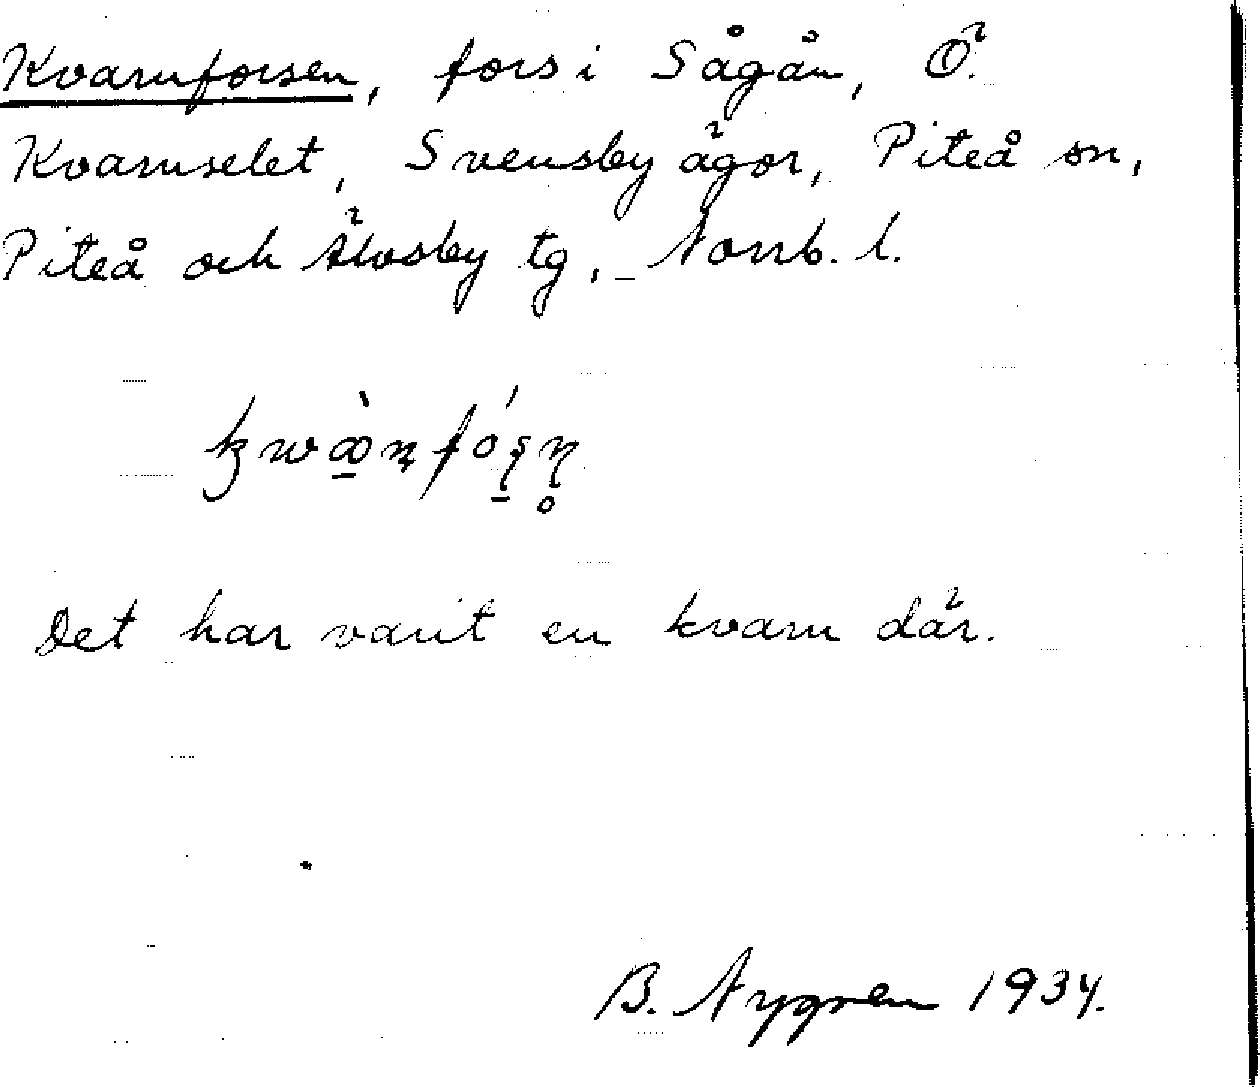 Kvarnforsen, fors i Sågån, Ö.
Kvarnselet, Svensby ägor, Piteå sn,
Piteå och Älvsby tg, Norrb. l.
Det har varit en kvarn där.
B. Nygren 1934.